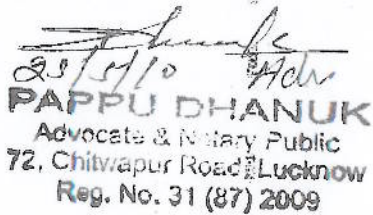 23/5/10 Adv.
PAPPU DHANUK
Advocate & Notary Public
72, Chitwapur Road, Lucknow
Reg. No. 31 (87) 2009